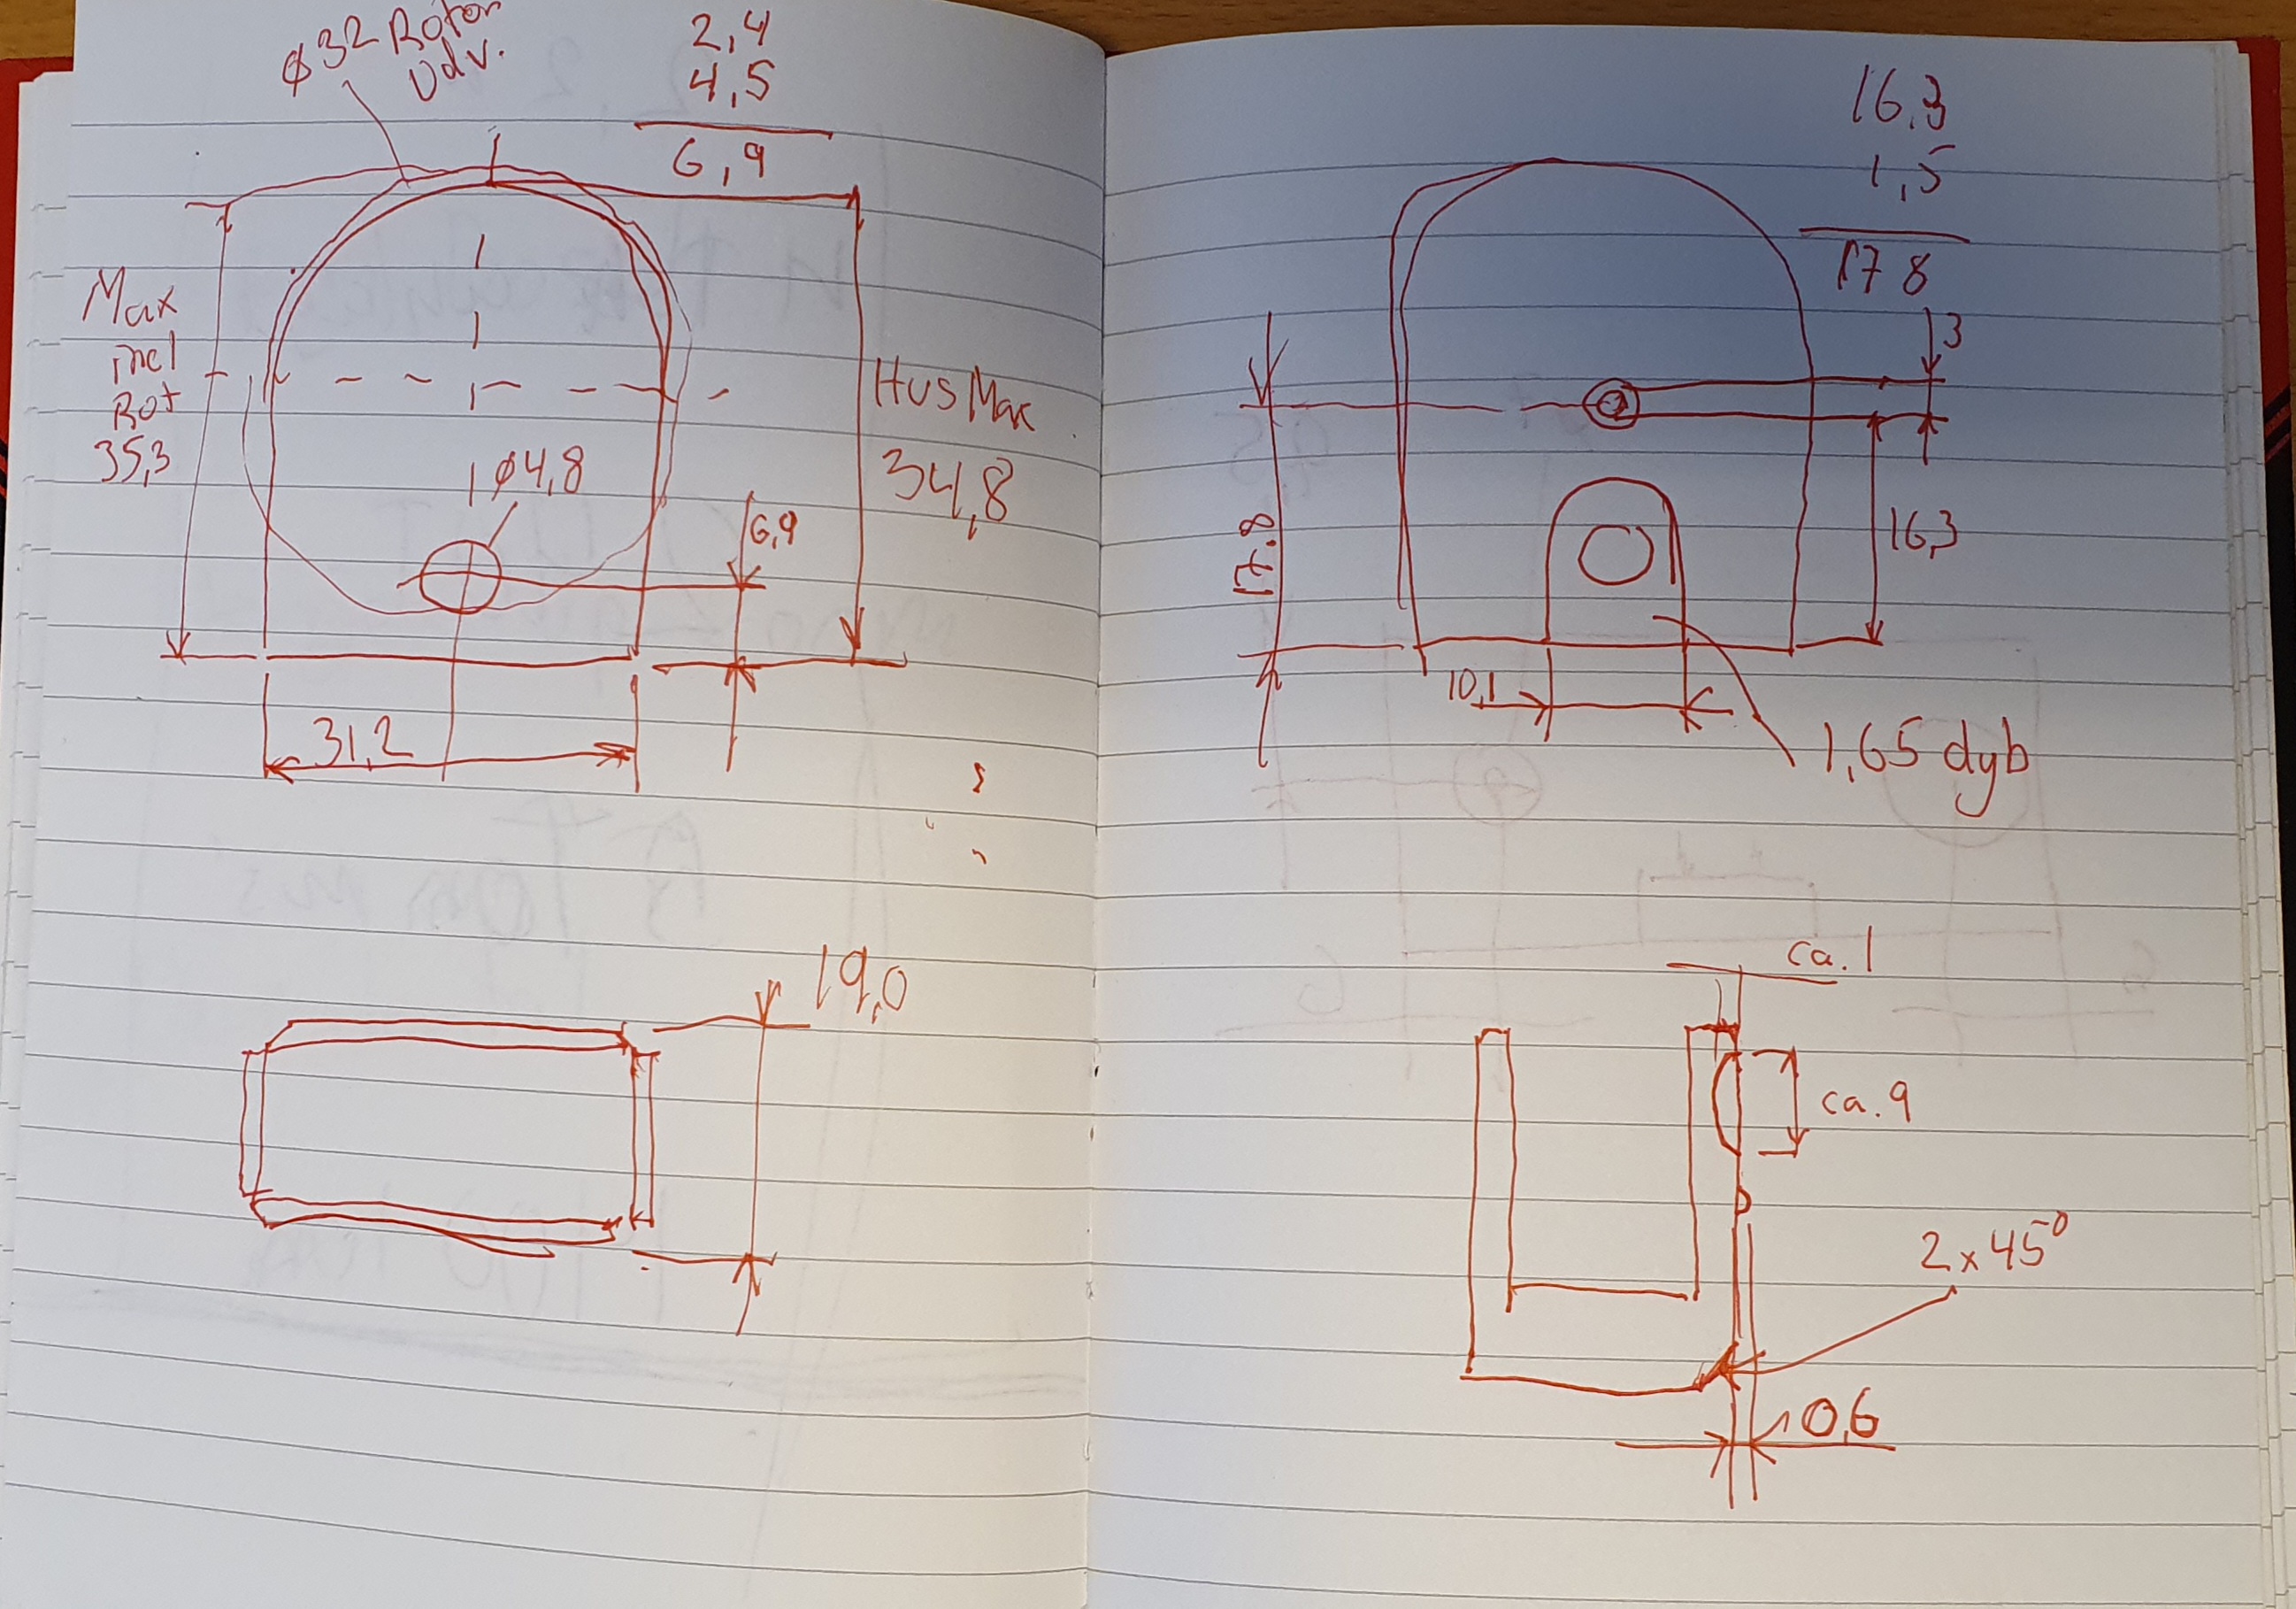 ø32 Rotor
Udv.
2,4
4,5
6,9
Max
incl
Rot
35,3
Hus Max
34,8
ø4,8
6,9
31,2
19,0
16,3
1,5
17 8
3
17.8
16,3
10,1
1,65 dyb
ca. 1
ca. 9
2 x 45°
0,6